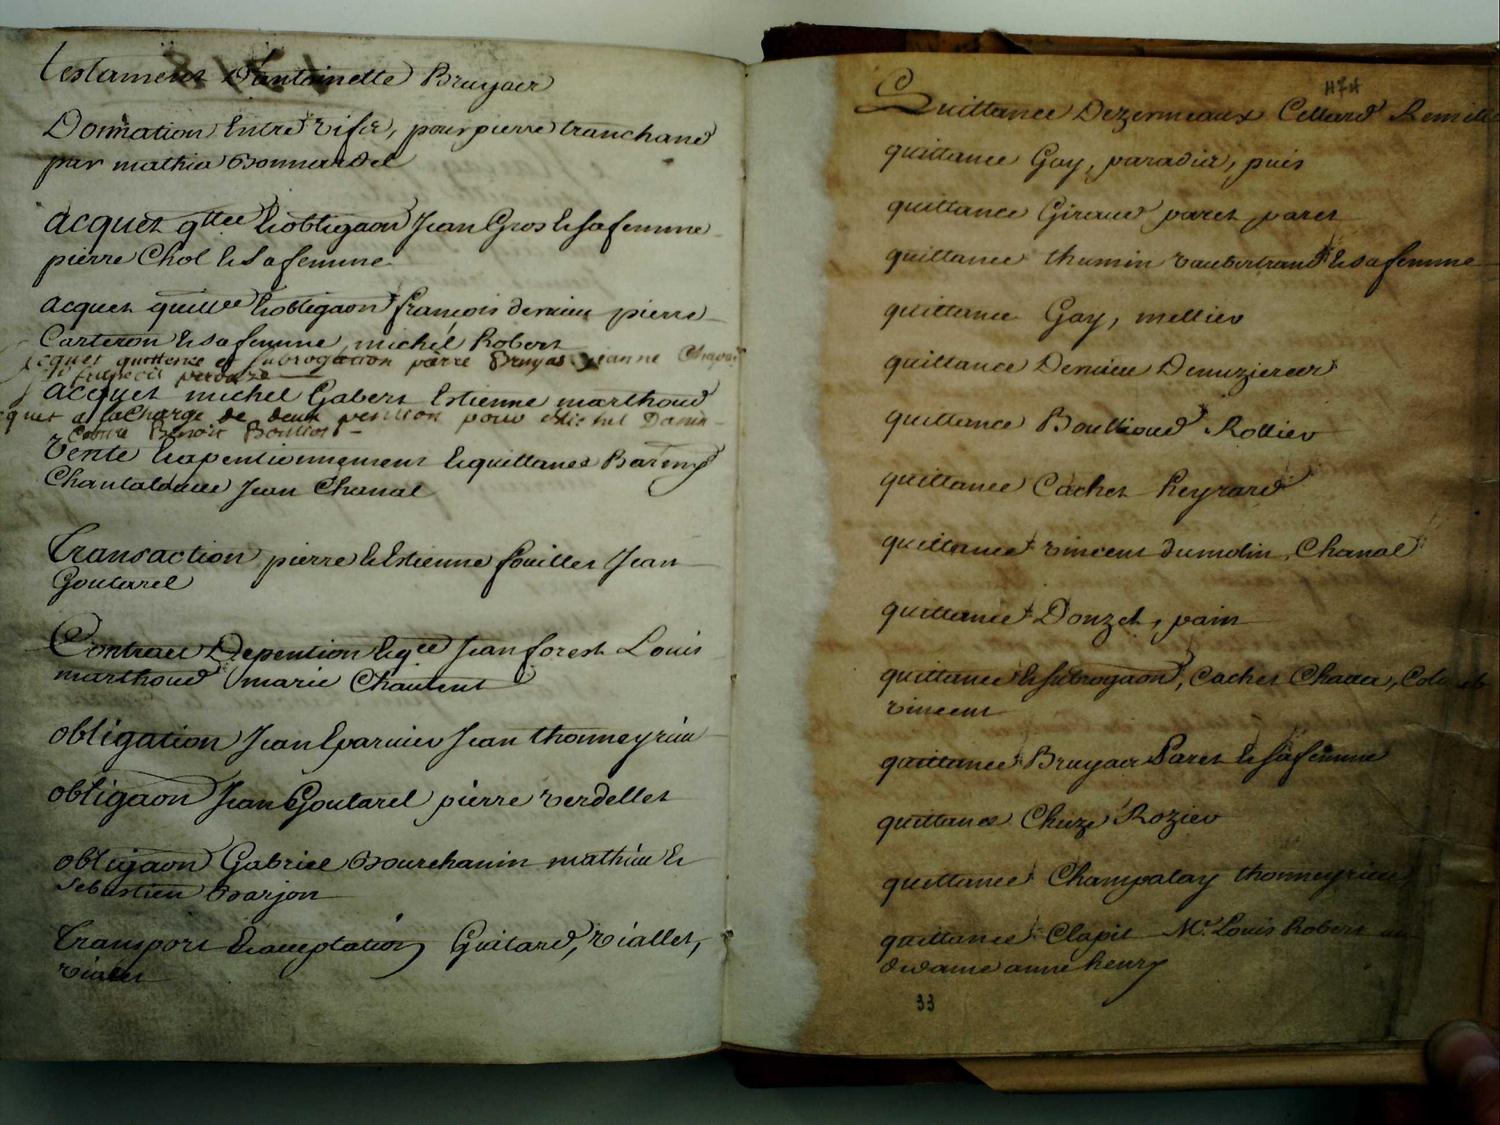 testament D'antoinette Bruyaer
Donnation Entre vifs, pour pierre tranchand
par mathia Bonnardel
acquet qttce Et obligaon Jean Gros Et sa femme
pierre Chol Et sa femme
acquet quittce Et obligaon françois pierre
Carteron Et sa femme, michel Robert
acquet quittence et subrogation pierre Bruyas jeanne
acquet michel Gabert Estienne marthoud
acquet a la charge de deux pention pour Michel
Benoit
vente Et apentionnement Et quittance
Jean Chanal
Transaction pierre Et Estienne fouilles Jean
Goutarel
Contract De pention Et qce Jean forest Louis
marthoud marie
obligation Jean Eparvier Jean thonneyrieu
obligaon Jean Goutarel pierre verdellet
obligaon Gabriel Bourchanin mathieu Et
sebastien Barjon
transport Et acceptation Guitard, viallet,
vialet
474
Quittance Dezermeaux Cellard
quittance Gay, paradis, puis
quittance Giraud paret, paret
quittance thumin Et sa femme
quittance Gay, mellier
quittance
quittance Boullioud Rollier
quittance Cachet heyrard
quittance vincent dumolin, Chanal
quittance Donzel, pain
quittance Et subrogaon, Cachet
vincent
quittance Bruyaer Paret Et sa femme
quittance Chuze Rozier
quittance Champalay thonneyrieu
quittance Clapit Mr Louis Robert
anne henry
33